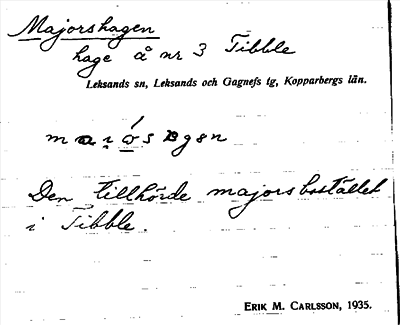 Majorshagen
hage å nr 3 Tibble
Leksands sn, Leksands och Gagnefs tg, Kopparbergs län.
Den tillhörde majorsbostället
i Tibble.
ERIK M. CARLSSON, 1935.